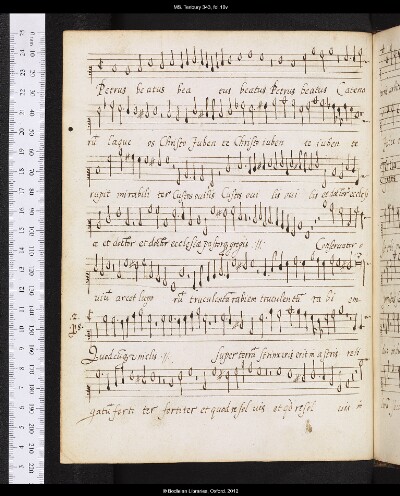 MS. Tenbury 343, fol. 19v
Petrus beatus bea tus beatus Petrus beatus Catena
rū laque os Christo Juben te Christo iuben te iuben te
rupit mirabili ter Custos ouilis Custos oui lis oui lis et doctor eccles
æ et doctor et doctor ecclesiæ pastorq gregis :||: Conseruator o
uiū arcet lupo rū truculentā rabiem truculentā ra bi em
2. ps.
Quodcunq vinclis :||: super terrā strinxerit erit in astris reli
gatū forti ter fortiter et quod resol uit et qd resol uit in
© Bodleian Libraries, Oxford, 2010